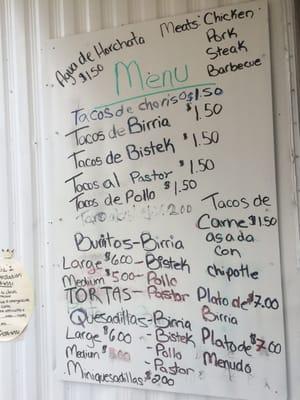 Agua de Horchata
$1.50
Meats: Chicken
Pork
Steak
Barbecue
Menu
Tacos de choriso $1.50
Tacos de Birria $1.50
Tacos de Bistek $1.50
Tacos al Pastor $1.50
Tacos de Pollo $1.50
$2.00
Tacos de
Carne $1.50
asada
con
chipotle
Buritos-Birria
Large $6.00-Bistek
Medium $5.00-Pollo
TORTAS-Pastor
Quesadillas-Birria
Large $6.00-Bistek
Medium -Pollo
-Pastor
Miniquesadillas $2.00
Plato de $7.00
Birria
Plato de $7.00
Menudo